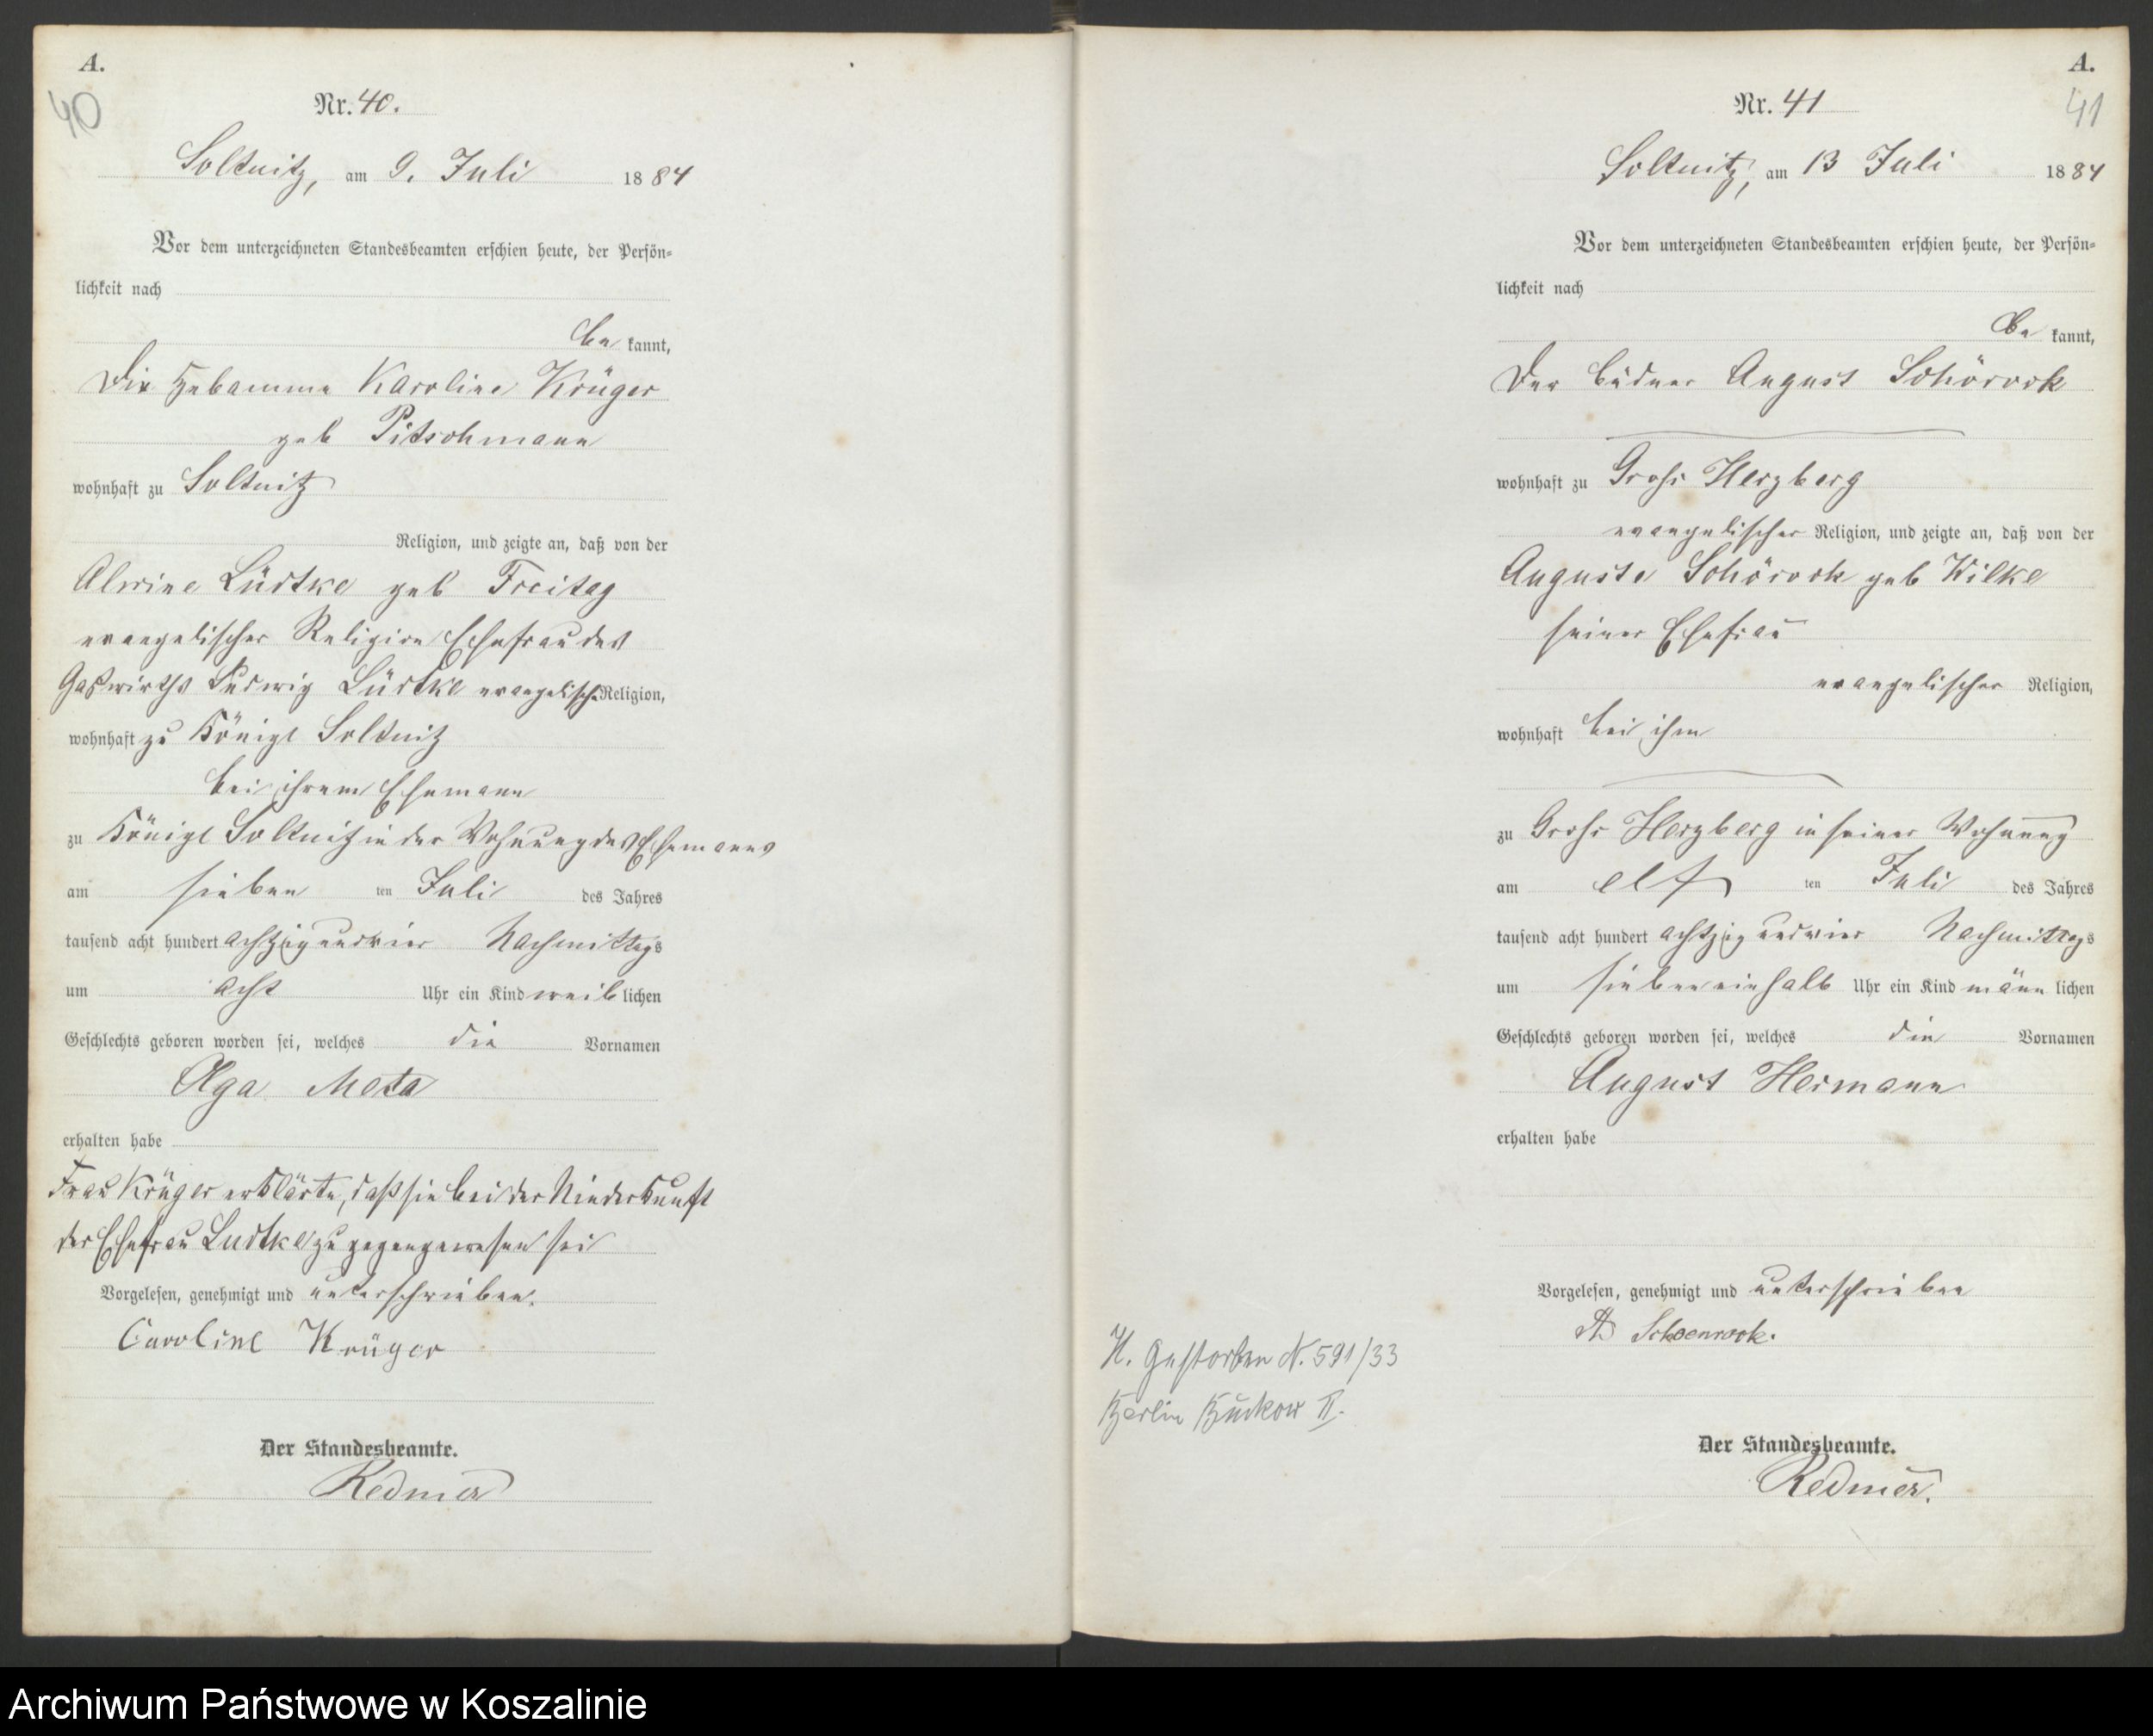 A.
40
Nr. 40.
Soltnitz, am 9. Juli 1884
Vor dem unterzeichneten Standesbeamten erschien heute, der Persön-
lichkeit nach
be kannt,
Die Hebamme Karoline Krüger
geb Pitschmann
wohnhaft zu Soltnitz
Religion, und zeigte an, daß von der
Alwine Lüdtke geb Freitag
evangelischer Religion Ehefrau des
Gastwirths Ludwig Lüdtke evangelisch. Religion,
wohnhaft zu Königl Soltnitz
bei ihrem Ehemann
zu Königl Soltnitz in der Wohnung des Ehemannes
am sieben ten Juli des Jahres
tausend acht hundert achtzig und vier Nachmittags
um acht Uhr ein Kind weib lichen
Geschlechts geboren worden sei, welches die Vornamen
Olga Meta
erhalten habe
Frau Krüger erklärte, daß sie bei der Niederkunft
der Ehefrau Ludtke zugegen gewesen sei
Vorgelesen, genehmigt und unterschrieben.
Caroline Krüger
Der Standesbeamte.
Redmer
A.
41
Nr. 41
Soltnitz, am 13 Juli 1884
Vor dem unterzeichneten Standesbeamten erschien heute, der Persön-
lichkeit nach
be kannt,
Der Büdner August Schörock
wohnhaft zu Grohs Herzberg
evangelischer Religion, und zeigte an, daß von der
Auguste Schörock geb Wilke
seiner Ehefrau
evangelischer Religion,
wohnhaft bei ihm
zu Grohs Herzberg in seiner Wohnung
am elf ten Juli des Jahres
tausend acht hundert achtzig und vier Nachmittags
um sieben einhalb Uhr ein Kind männ lichen
Geschlechts geboren worden sei, welches die Vornamen
August Hermann
erhalten habe
Vorgelesen, genehmigt und unterschrieben
A Schoenrock.
H. Gestorben N. 591/33
Berlin Buckow II.
Der Standesbeamte.
Redmer.
Archiwum Państwowe w Koszalinie